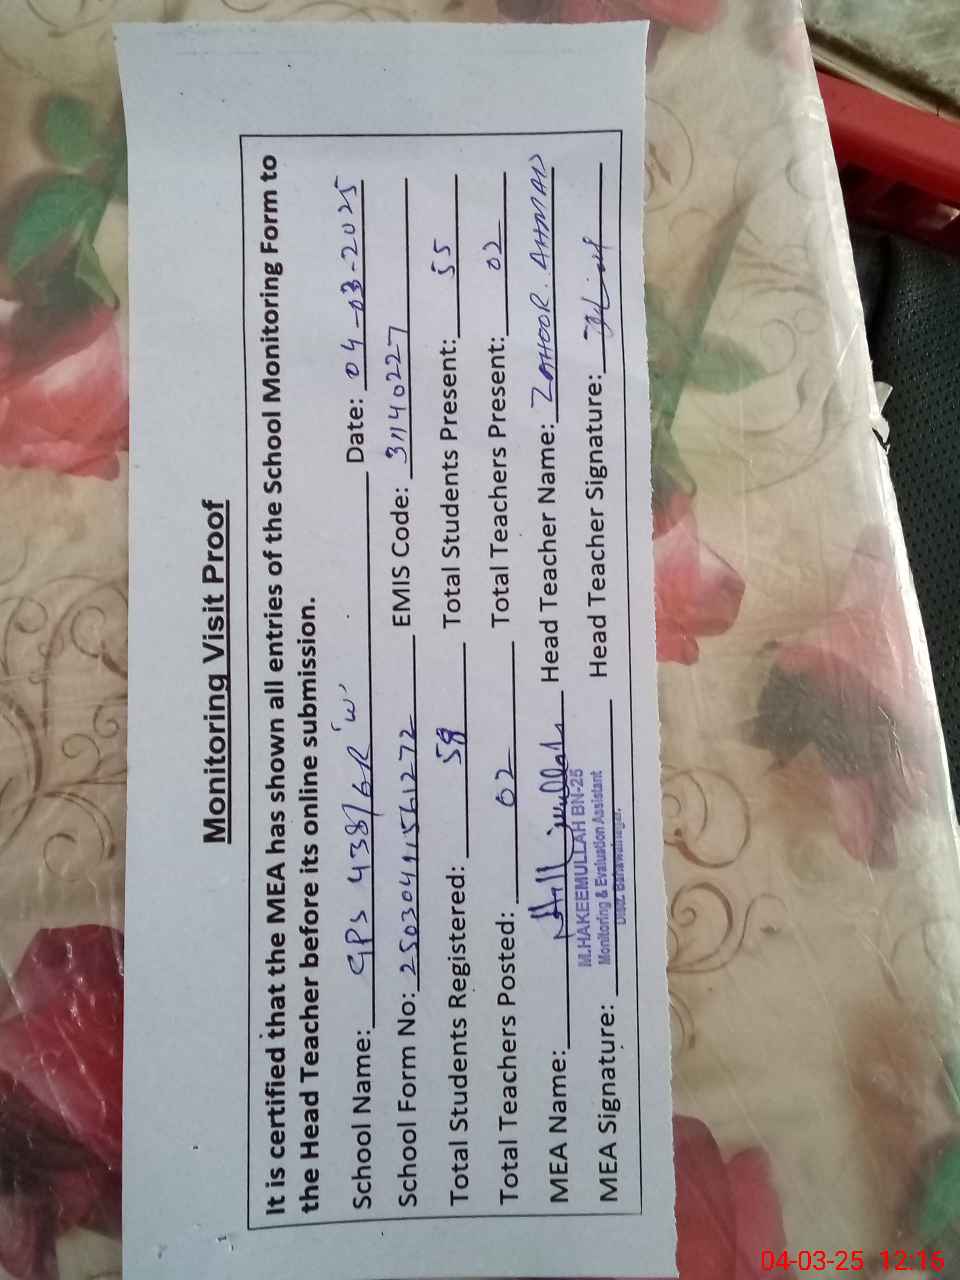 Monitoring Visit Proof
It is certified that the MEA has shown all entries of the School Monitoring Form to
the Head Teacher before its online submission.
School Name: GPS 438/6R 'W' Date: 04-03-2025
School Form No: 25030411561272 EMIS Code: 31140227
Total Students Registered: 59 Total Students Present: 55
Total Teachers Posted: 02 Total Teachers Present: 02
MEA Name: Head Teacher Name: ZAHOOR. AHMAD
M.HAKEEMULLAH BN-25
MEA Signature: Monitoring & Evaluation Assistant Head Teacher Signature:
Distt. Bahawalnagar.
04-03-25 12:16